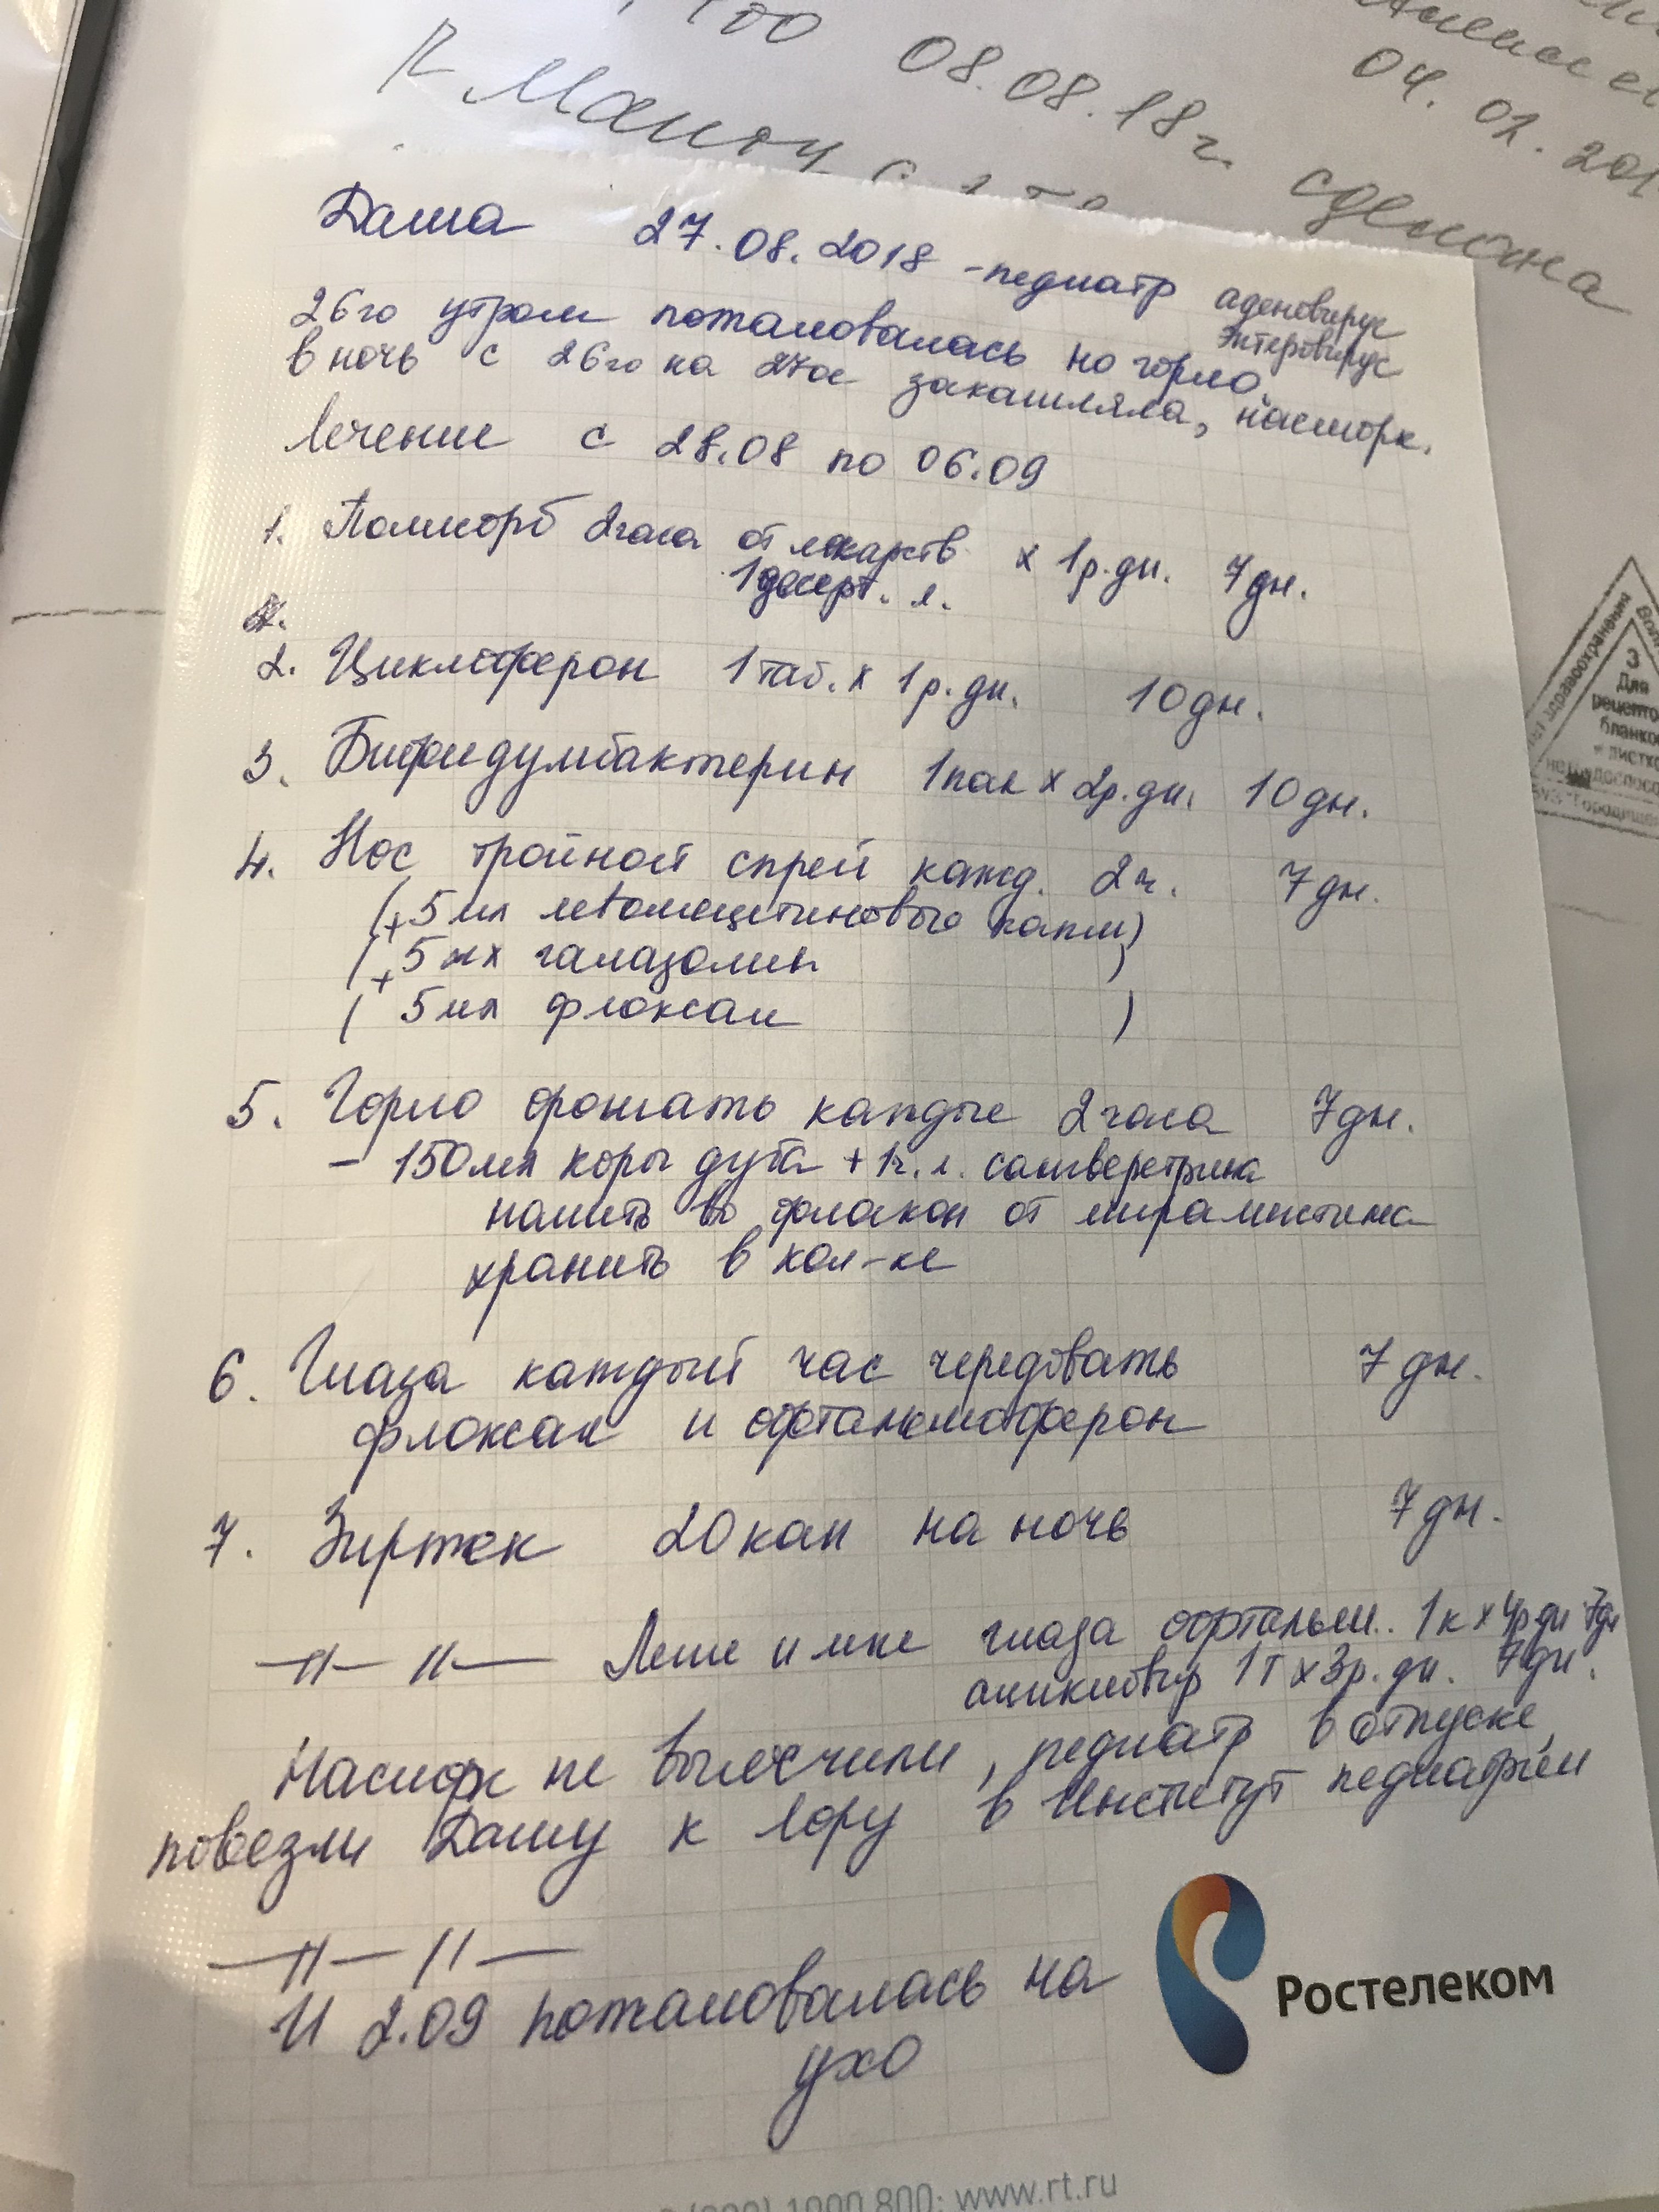 08.08.18г.
Манту
сделона
04. 02. 201
Даша 27.08.2018 - педиатр аденовирус
энтеровирус
26го утром пожаловалась на горло,
в ночь с 26го на 27ое закашляла, насморк.
Лечение с 28.08 по 06.09
1. Полисорб 2часа от лекарств х 1р.дн. 7дн.
1десерт. л.
2. Циклоферон 1таб. х 1р.дн. 10дн.
3. Бифидумбактерин 1пак х 2р.дн. 10дн.
4. Нос тройной спрей кажд. 2ч. 7дн.
(+5мл левомецитиновые капли)
(+5мл галазолин )
( 5мл флоксал )
5. Горло орошать каждые 2часа 7дн.
- 150мл коры дуба + 1ч.л. сангвиретрина
налить во флакон от мирамистина
хранить в хол-ке
6. Глаза каждый час чередовать 7дн.
флоксал и офтальмоферон
7. Зиртек 20кап на ночь 7дн.
—//— //— Леше и мне глаза офтальм.. 1к х 4р.дн 7дн
ацикловир 1т х 3р.дн. 7дн.
Насморк не вылечили, педиатр в отпуске,
повезли Дашу к Лору в Институт педиатрии
—//— //—
И 2.09 пожаловалась на
ухо
Ростелеком
1000 800; www.rt.ru
здравоохранения
3
Для
рецепто
бланко
и листк
Городище